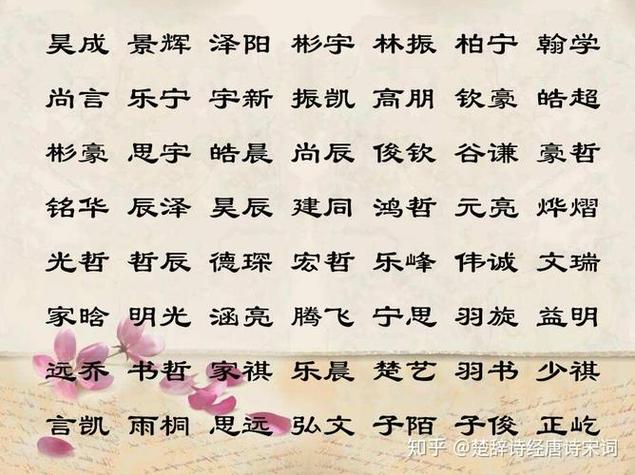 昊成 景辉 泽阳 彬宇 林振 柏宁 翰学
尚言 乐宁 宇新 振凯 高朋 钦豪 皓超
彬豪 思宇 皓晨 尚辰 俊钦 谷谦 豪哲
铭华 辰泽 昊辰 建同 鸿哲 元亮 烨熠
光哲 哲辰 德琛 宏哲 乐峰 伟诚 文瑞
家晗 明光 涵亮 腾飞 宁思 羽旋 益明
远乔 书哲 家祺 乐晨 楚艺 羽书 少祺
言凯 雨桐 思远 弘文 子陌 子俊 正屹
知乎 @楚辞诗经唐诗宋词